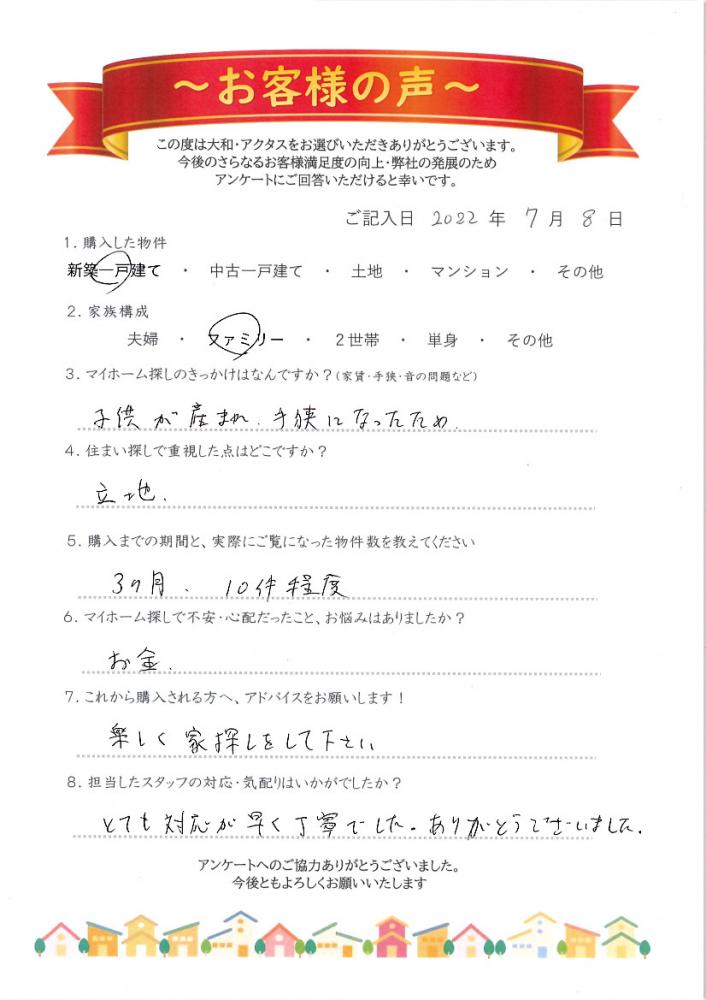 ～お客様の声～
この度は大和・アクタスをお選びいただきありがとうございます。
今後のさらなるお客様満足度の向上・弊社の発展のため
アンケートにご回答いただけると幸いです。
ご記入日 2022 年 7 月 8 日
1. 購入した物件
新築一戸建て ・ 中古一戸建て ・ 土地 ・ マンション ・ その他
2. 家族構成
夫婦 ・ ファミリー ・ 2世帯 ・ 単身 ・ その他
3. マイホーム探しのきっかけはなんですか？（家賃・手狭・音の問題など）
子供が産まれ、手狭になったため.
4. 住まい探しで重視した点はどこですか？
立地.
5. 購入までの期間と、実際にご覧になった物件数を教えてください
3ヶ月、10件程度
6. マイホーム探しで不安・心配だったこと、お悩みはありましたか？
お金.
7. これから購入される方へ、アドバイスをお願いします！
楽しく家探しをして下さい
8. 担当したスタッフの対応・気配りはいかがでしたか？
とても対応が早く丁寧でした。ありがとうございました.
アンケートへのご協力ありがとうございました。
今後ともよろしくお願いいたします